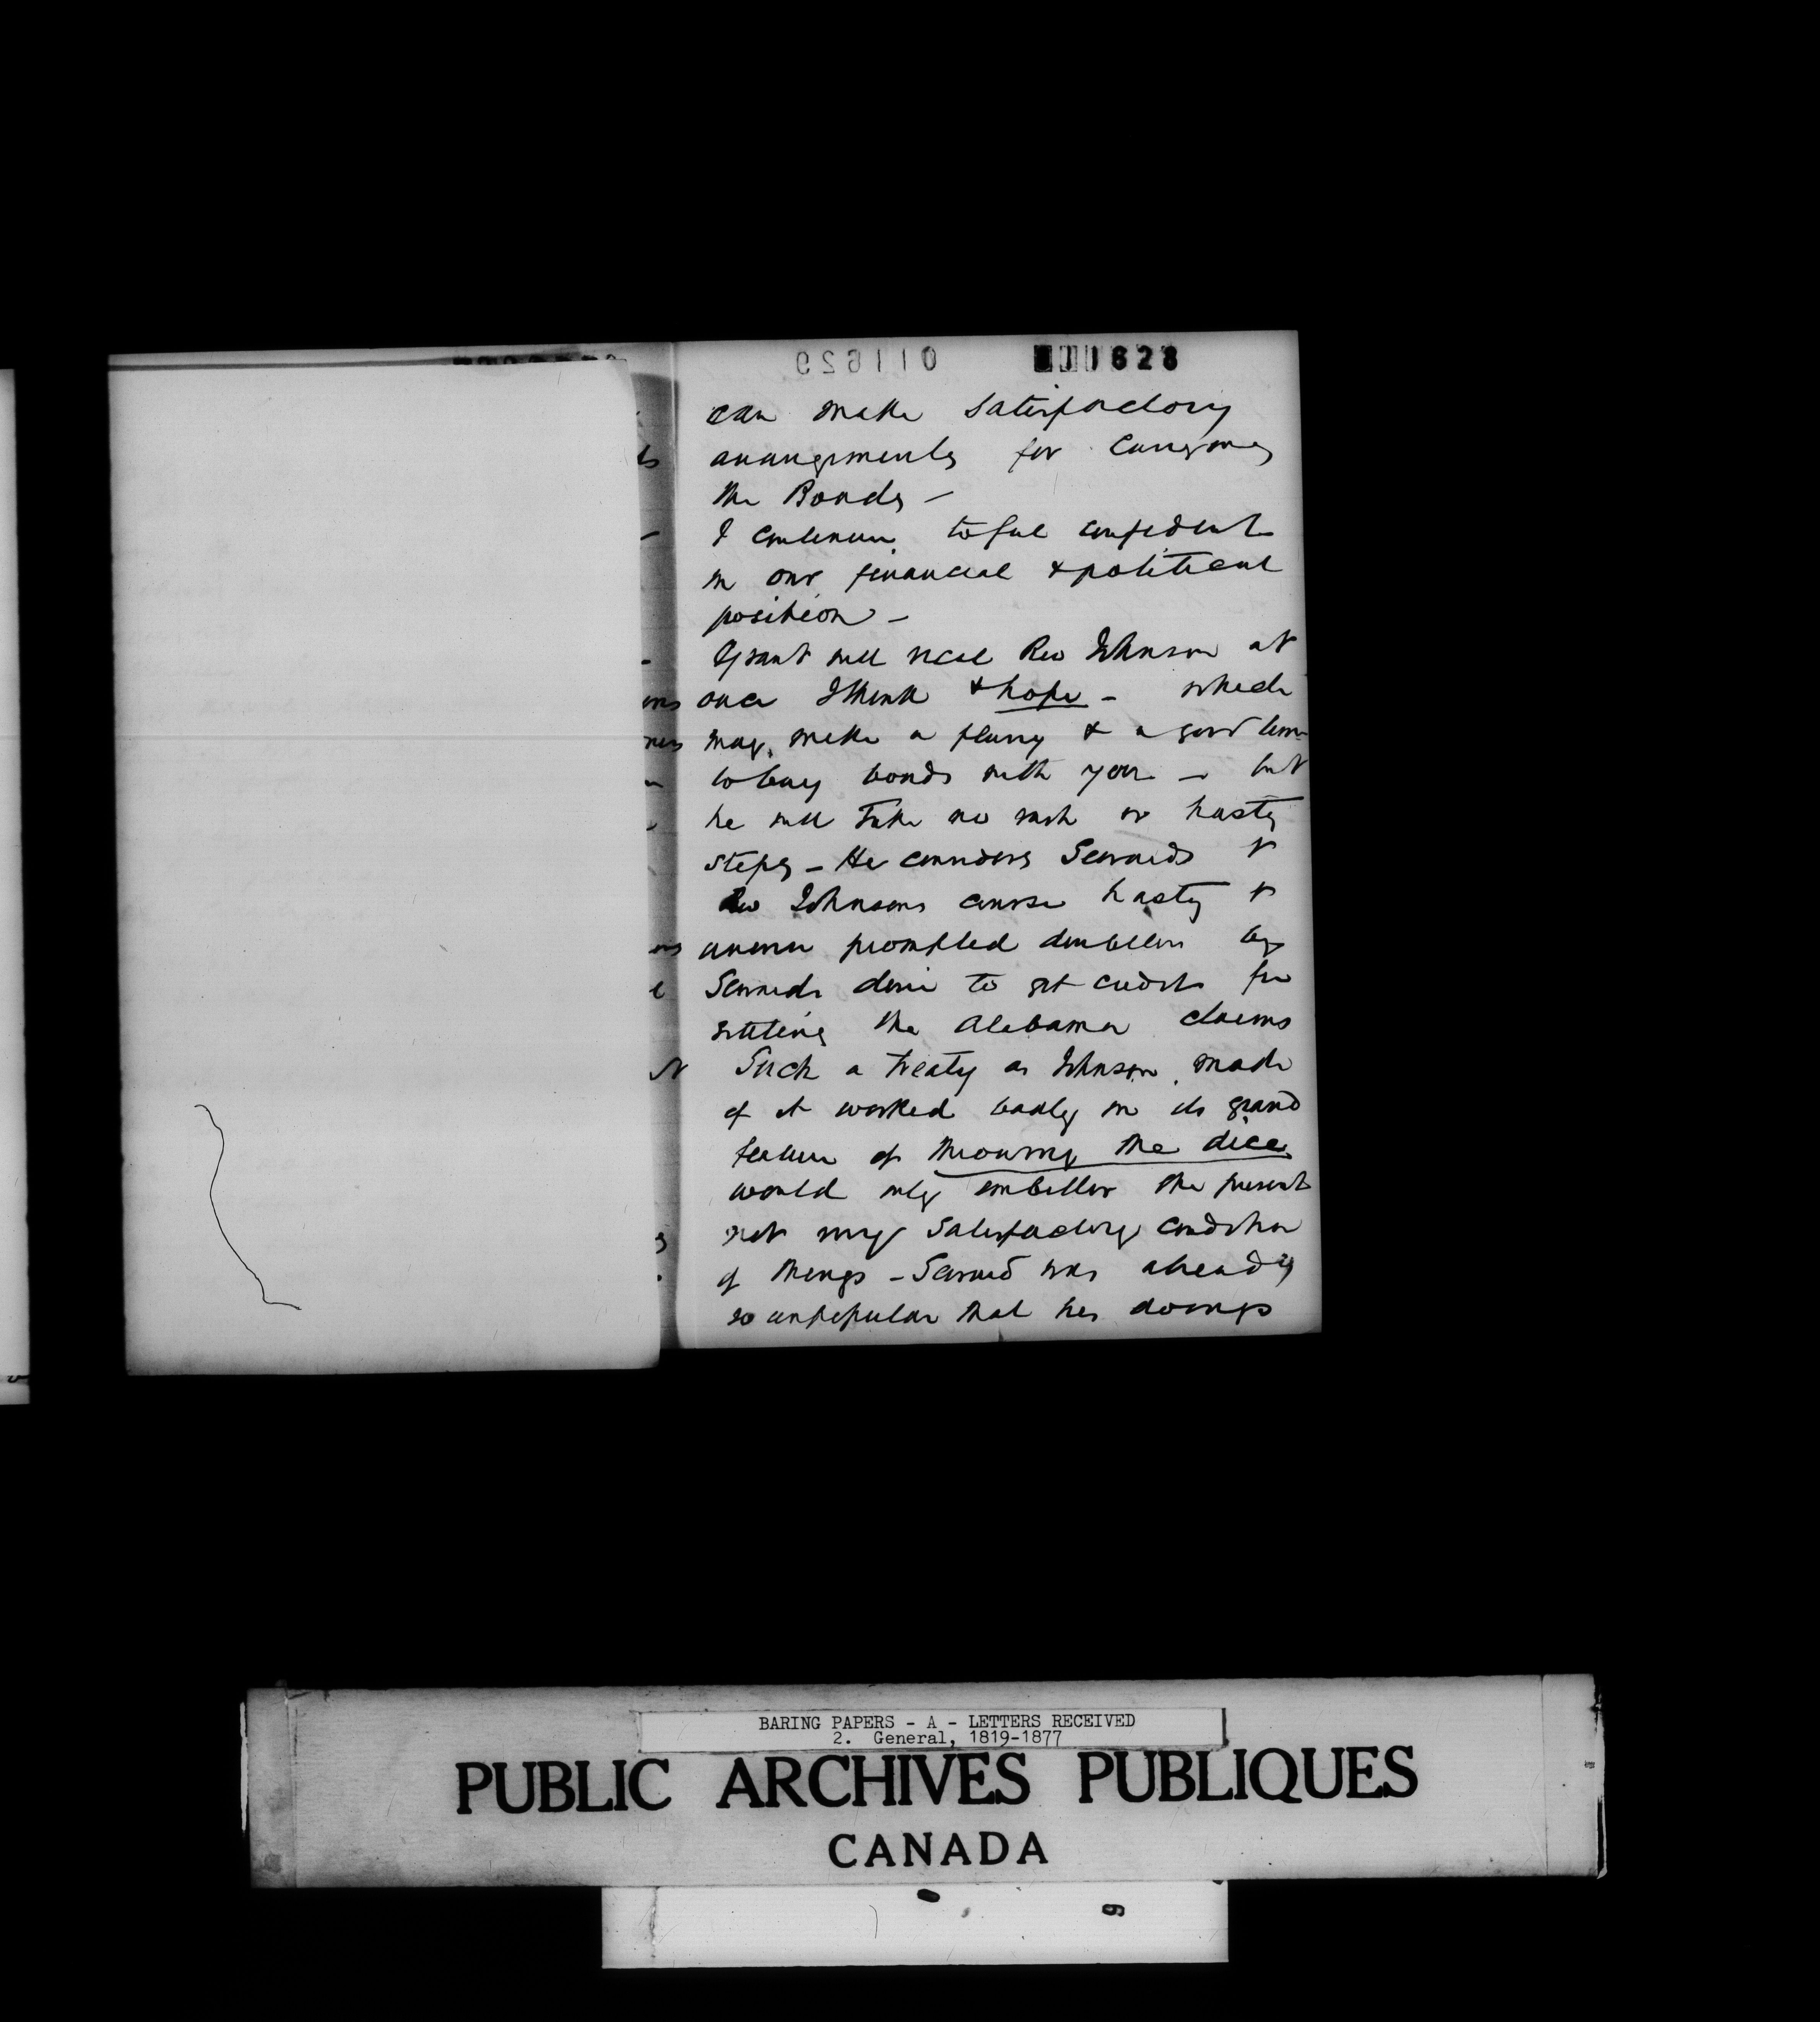 011629
011628
can make satisfactory
arrangements for carrying
the Bonds —
I continue to feel confident
in our financial & political
position —
Grant will recall Rev Johnson at
once I think & hope — which
may make a flurry & a good time
to buy bonds with you — but
he will take no rash or hasty
steps — He considers Sewards &
Rev Johnsons course hasty &
prompted doubtless by
Sewards desire to get credit for
settling the Alabama claims
Such a treaty as Johnson made
if it worked badly in its grand
feature of throwing the dice
would only embitter the present
not very satisfactory condition
of things — Seward was already
so unpopular that his doings
BARING PAPERS - A - LETTERS RECEIVED
2. General, 1819-1877
PUBLIC ARCHIVES PUBLIQUES
CANADA